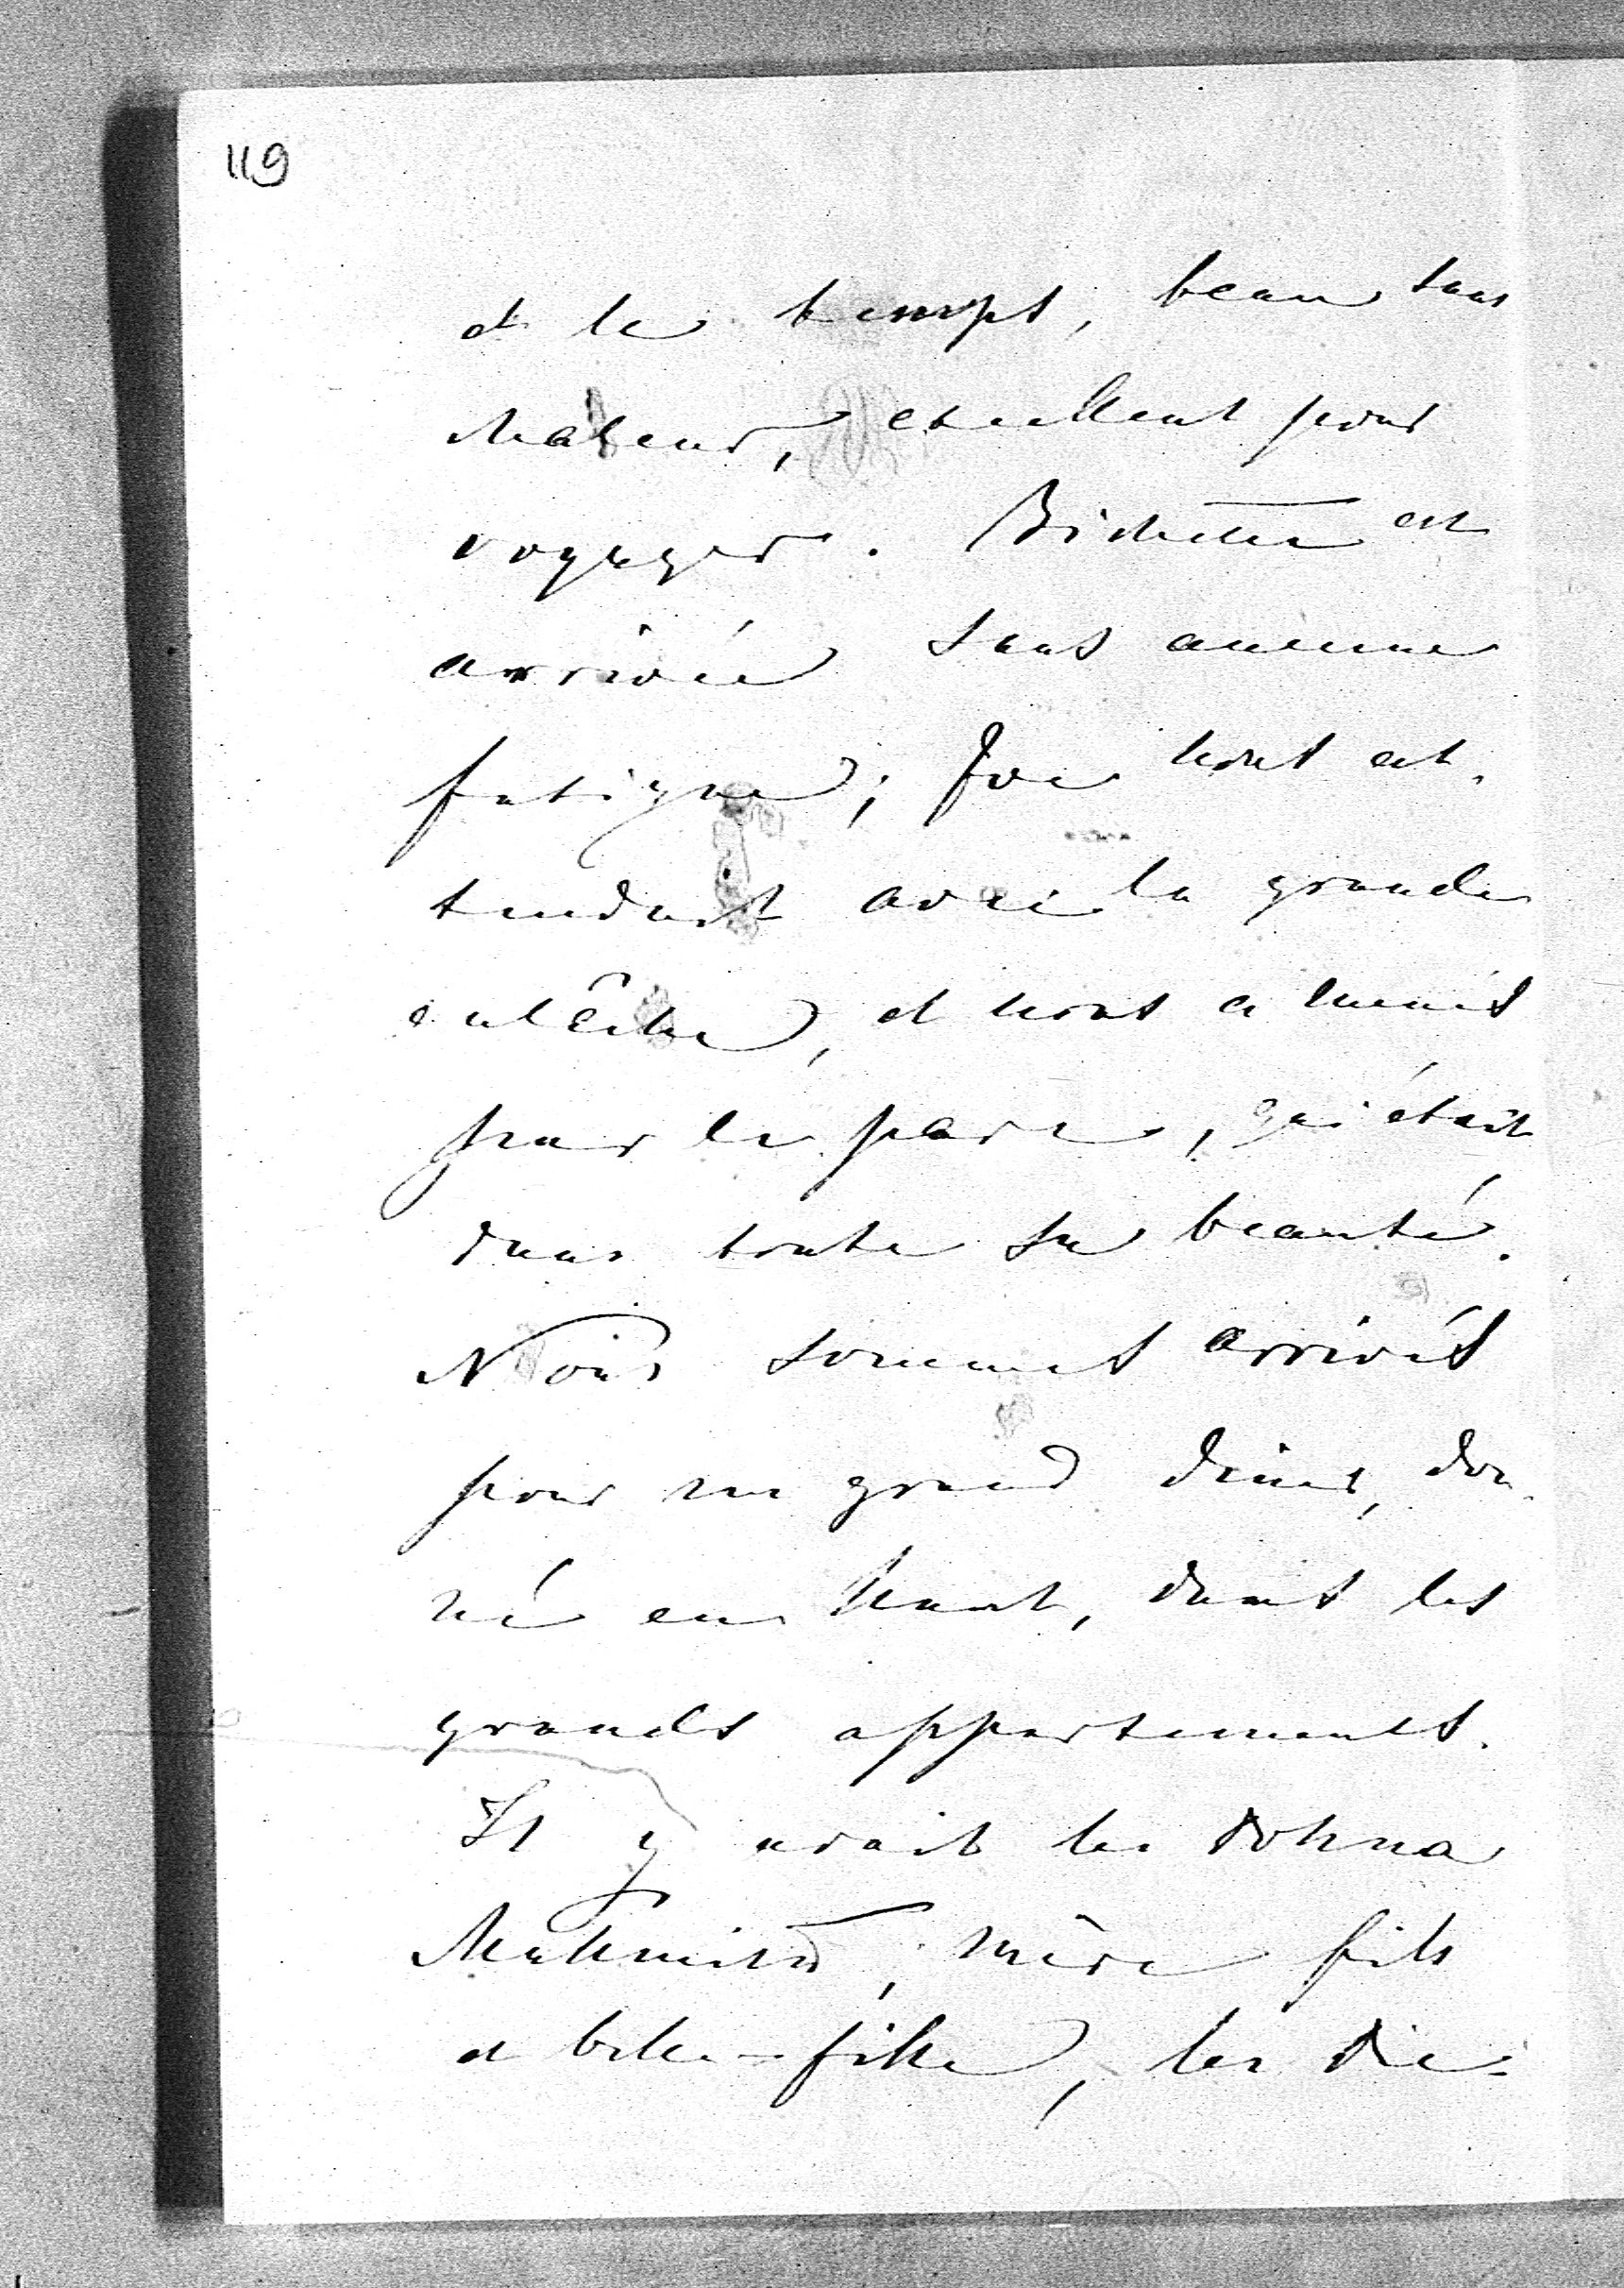 119
et le temps, beau sans
chaleur, excellent pour
voyager. Bichette est
arrivée sans aucune
fatigue; Joe nous at-
tendait avec la grande
calèche, et nous a menés
par le parc, qui était
dans toute sa beauté.
Nous sommes arrivés
pour un grand dîner, don-
né en haut, dans les
grands appartements.
Il y avait les Dohna
Mallmitz, mère fils
et belle-fille, les Die-